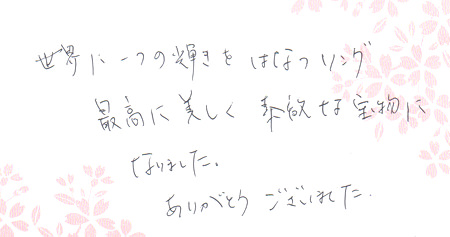 世界に一つの輝きをはなつリング
最高に美しく素敵な宝物に
なりました。
ありがとうございました.